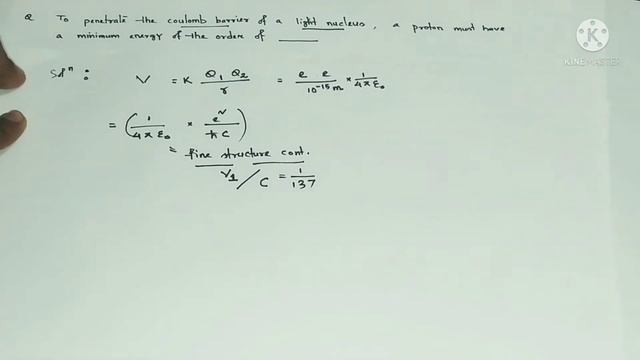 Q To penetrate the coulomb barrier of a light nucleus, a proton must have
a minimum energy of the order of ______
KINEMASTER
Solⁿ : V = K Q₁ Q₂ / r = e e / 10⁻¹⁵ m × 1 / 4πε₀
= ( 1 / 4πε₀ × e² / ħc )
= fine structure cont.
V₁ / C = 1 / 137